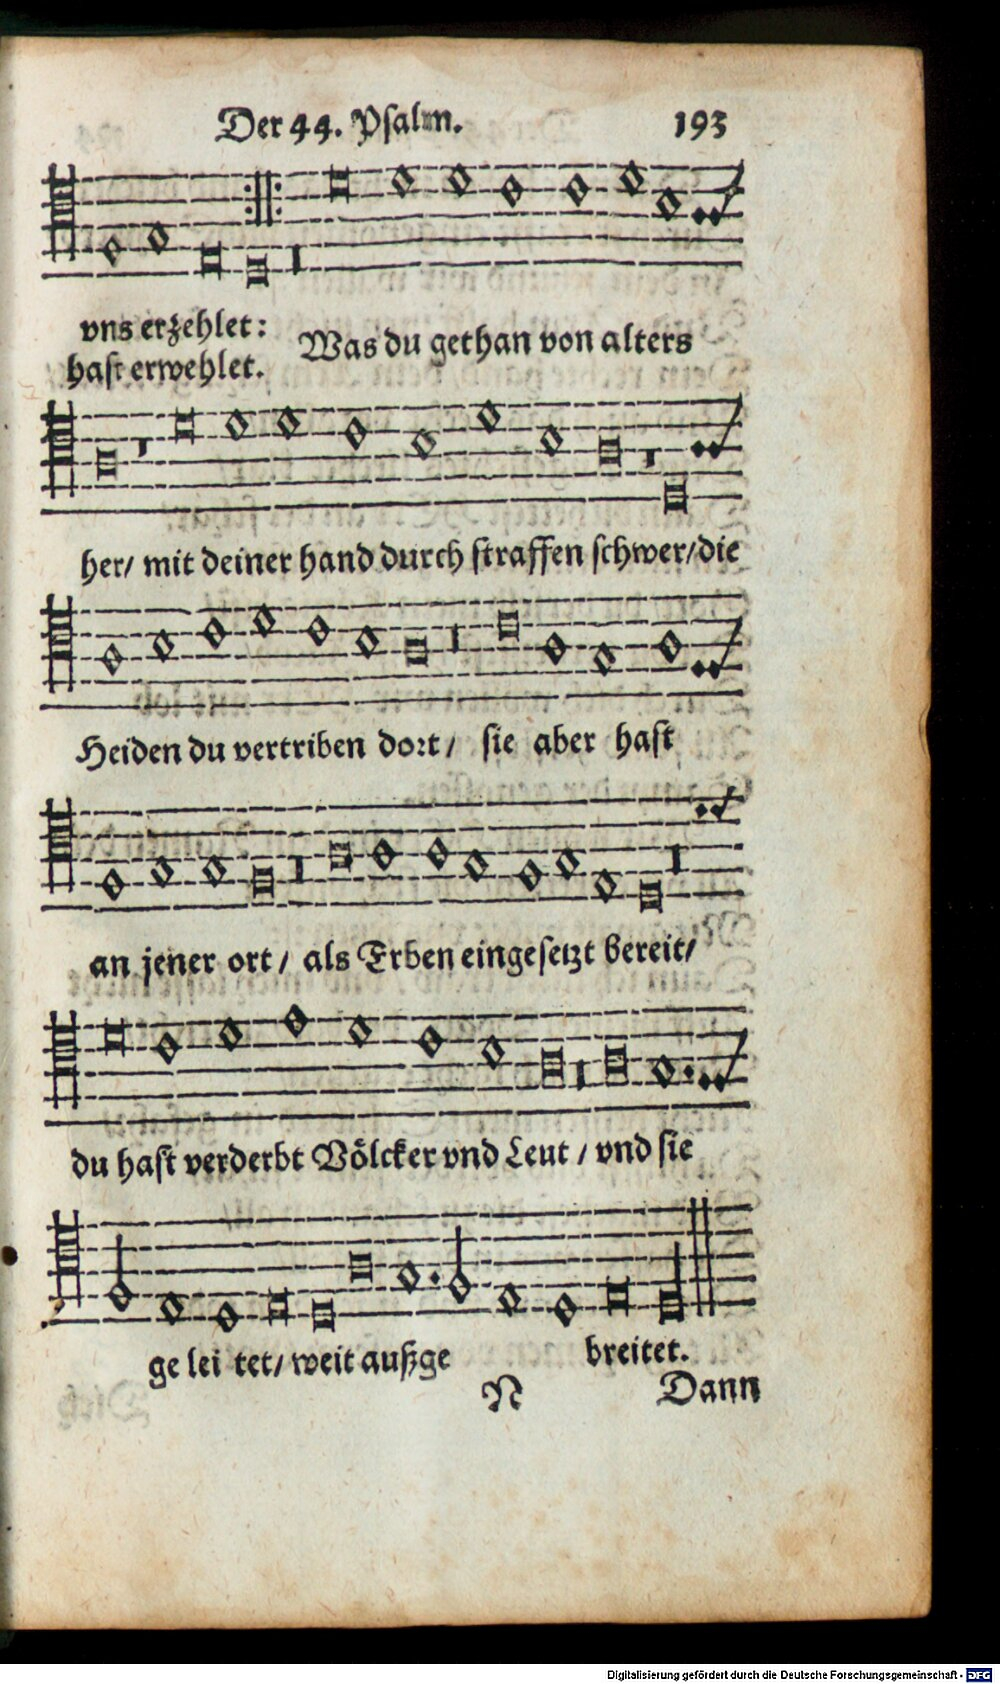 Der 44. Psalm. 193
vns erzehlet:
hast erwehlet.
Was du gethan von alters
her/ mit deiner hand durch straffen schwer/ die
Heiden du vertriben dort/ sie aber hast
an jener ort/ als Erben eingesetzt bereit/
du hast verderbt Völcker vnd Leut/ vnd sie
ge lei tet/ weit außge breitet.
N Dann
Digitalisierung gefördert durch die Deutsche Forschungsgemeinschaft - DFG